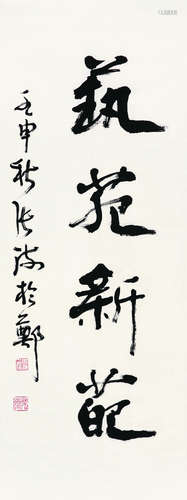 藝苑新葩
壬申秋張海於鄭